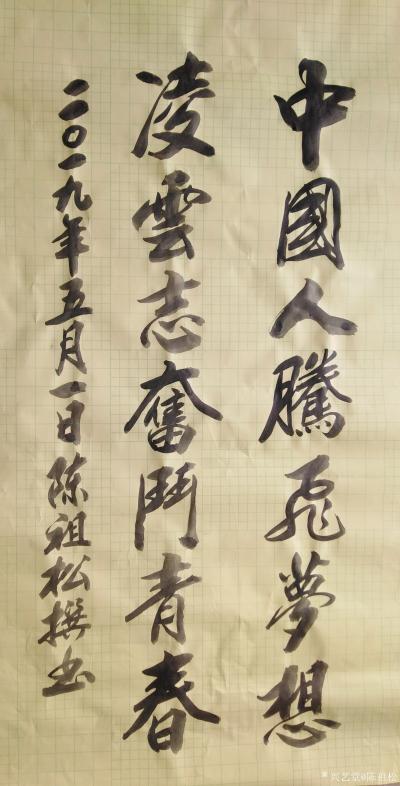 中國人騰飛夢想
凌雲志奮鬥青春
二〇一九年五月一日陈祖松撰书
兴艺堂@陈祖松